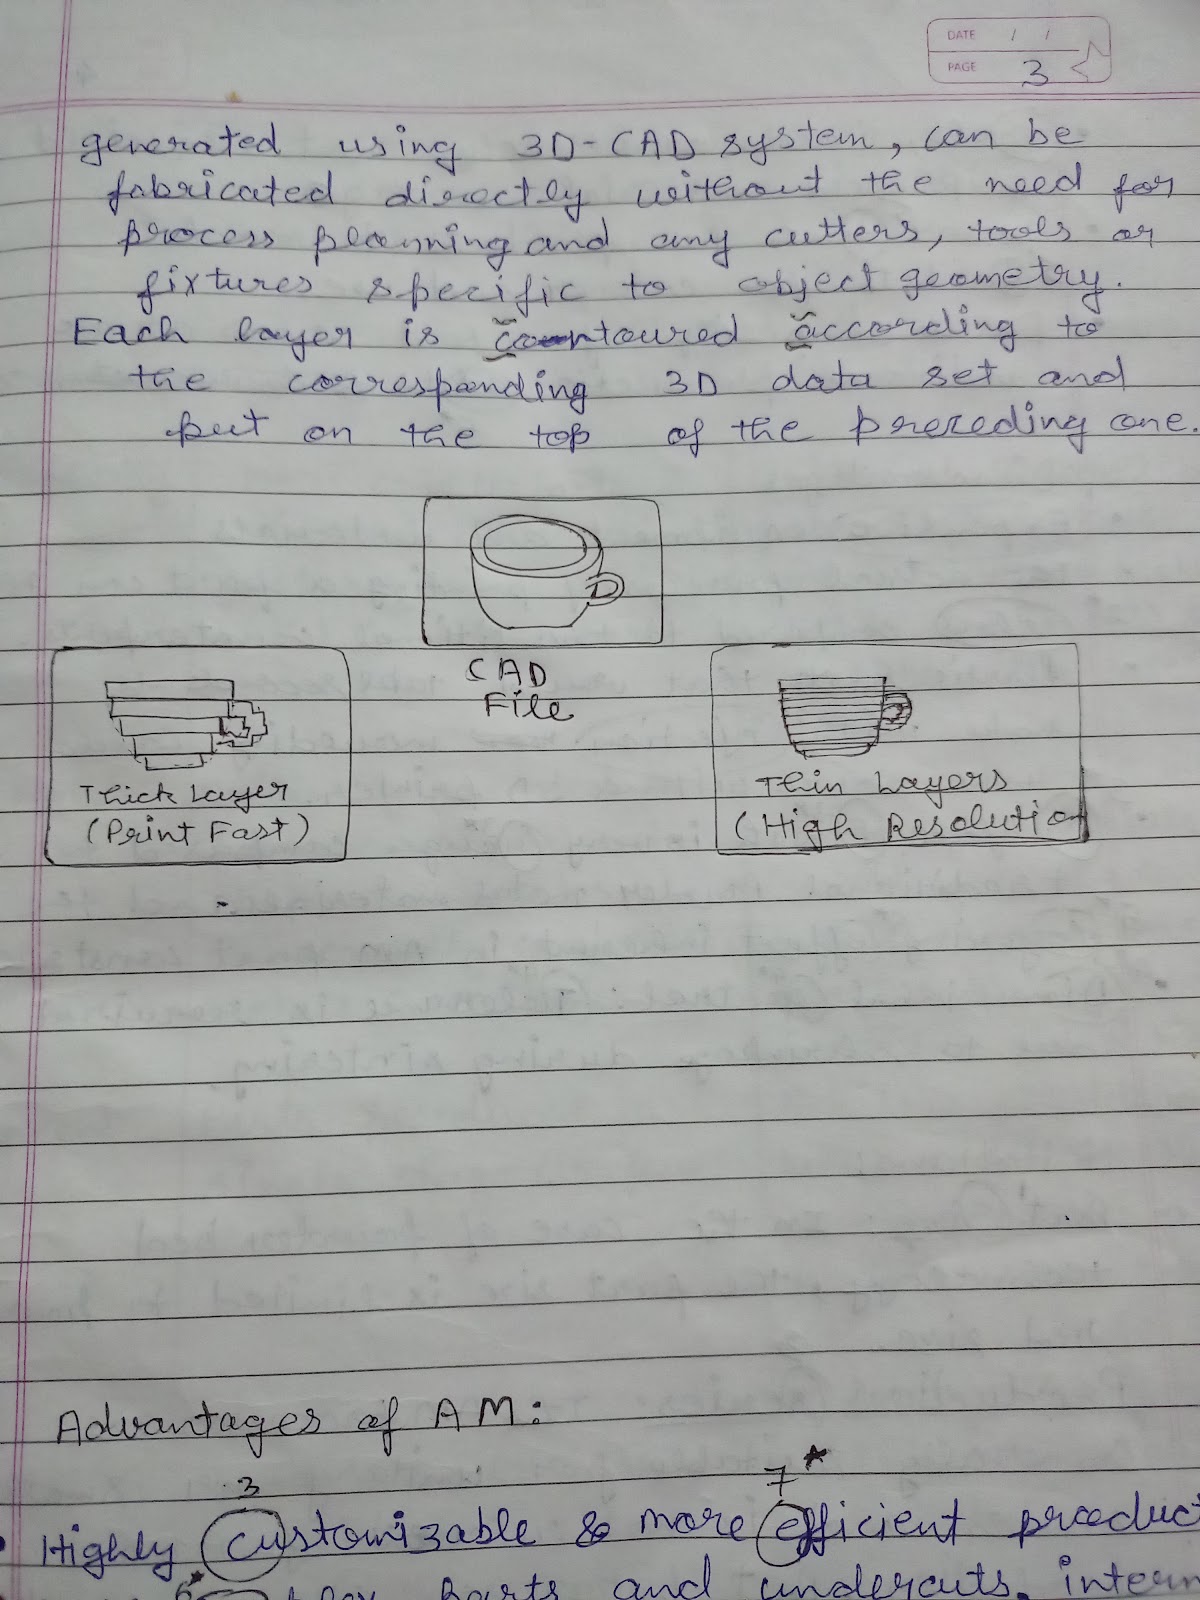 DATE / /
PAGE 3
generated using 3D-CAD system, can be
fabricated directly without the need for
process planning and any cutters, tools or
fixtures specific to object geometry.
Each layer is contoured according to
the corresponding 3D data set and
put on the top of the preceding one.
CAD
File
Thick Layer
(Print Fast)
Thin Layers
(High Resolution
Advantages of AM:
3 7
• Highly customizable & more efficient product
6 parts and undercuts, intern